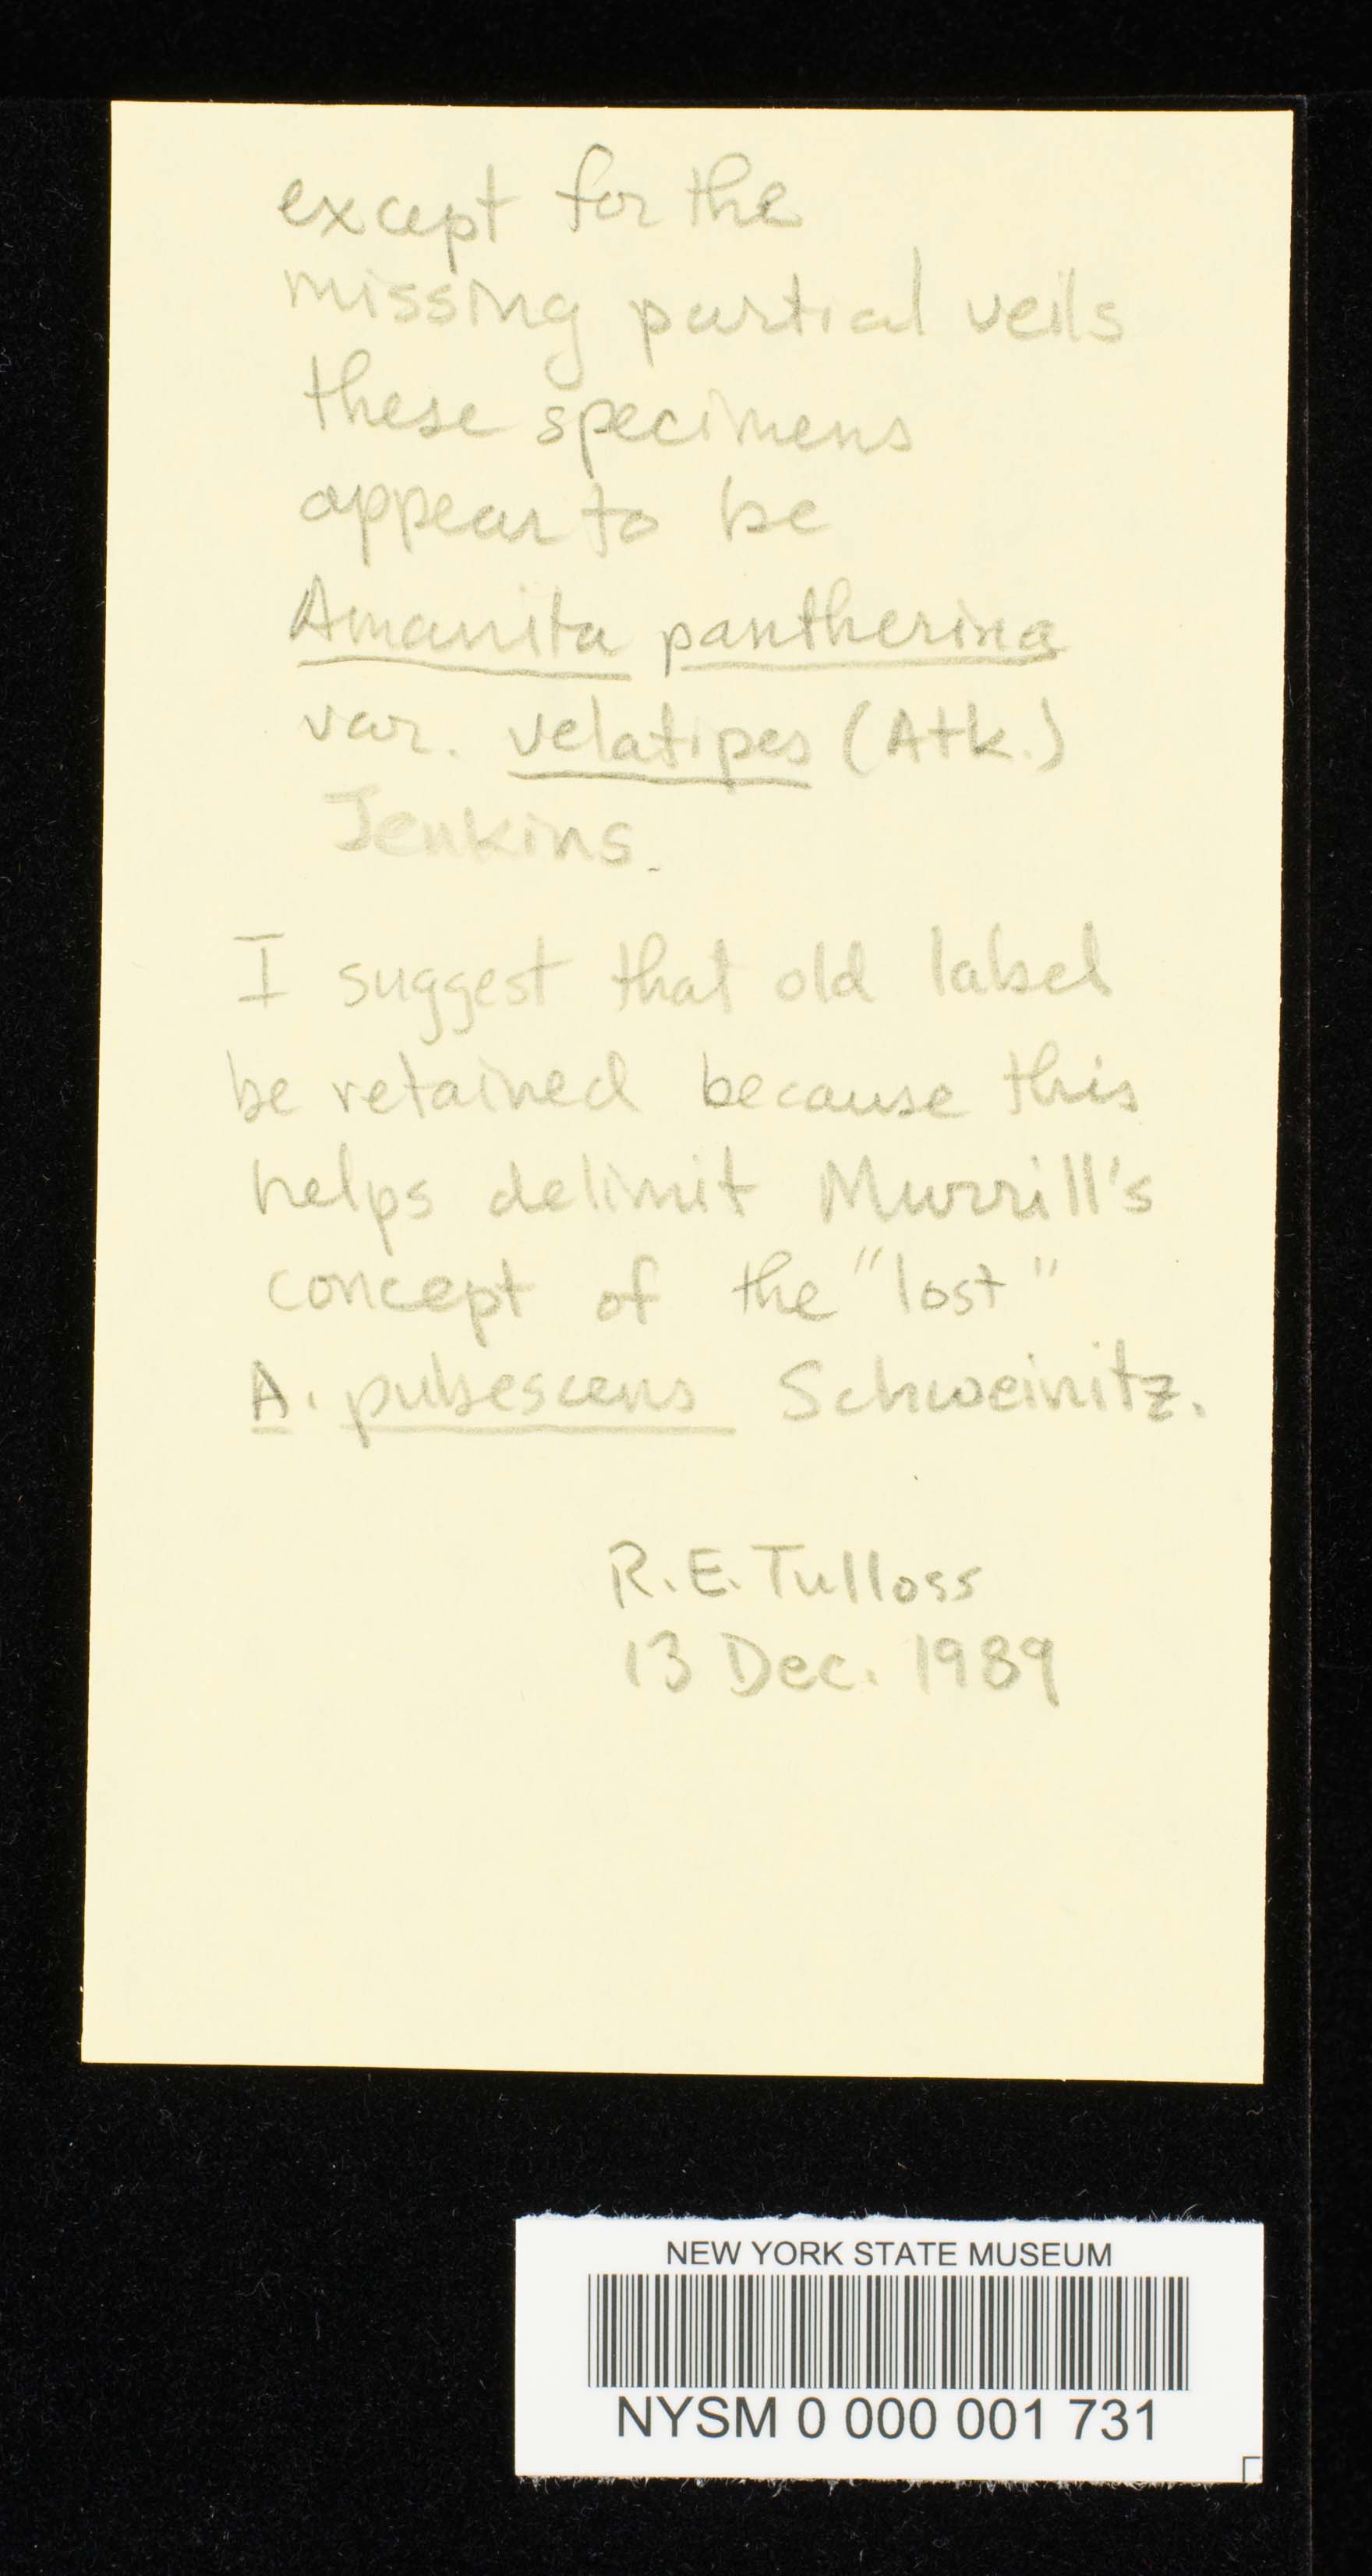 except for the
missing partial veils
these specimens
appear to be
Amanita pantherina
var. velatipes (Atk.)
Jenkins.
I suggest that old label
be retained because this
helps delimit Murrill's
concept of the "lost"
A. pubescens Schweinitz.
R.E. Tulloss
13 Dec. 1989
NEW YORK STATE MUSEUM
NYSM 0 000 001 731